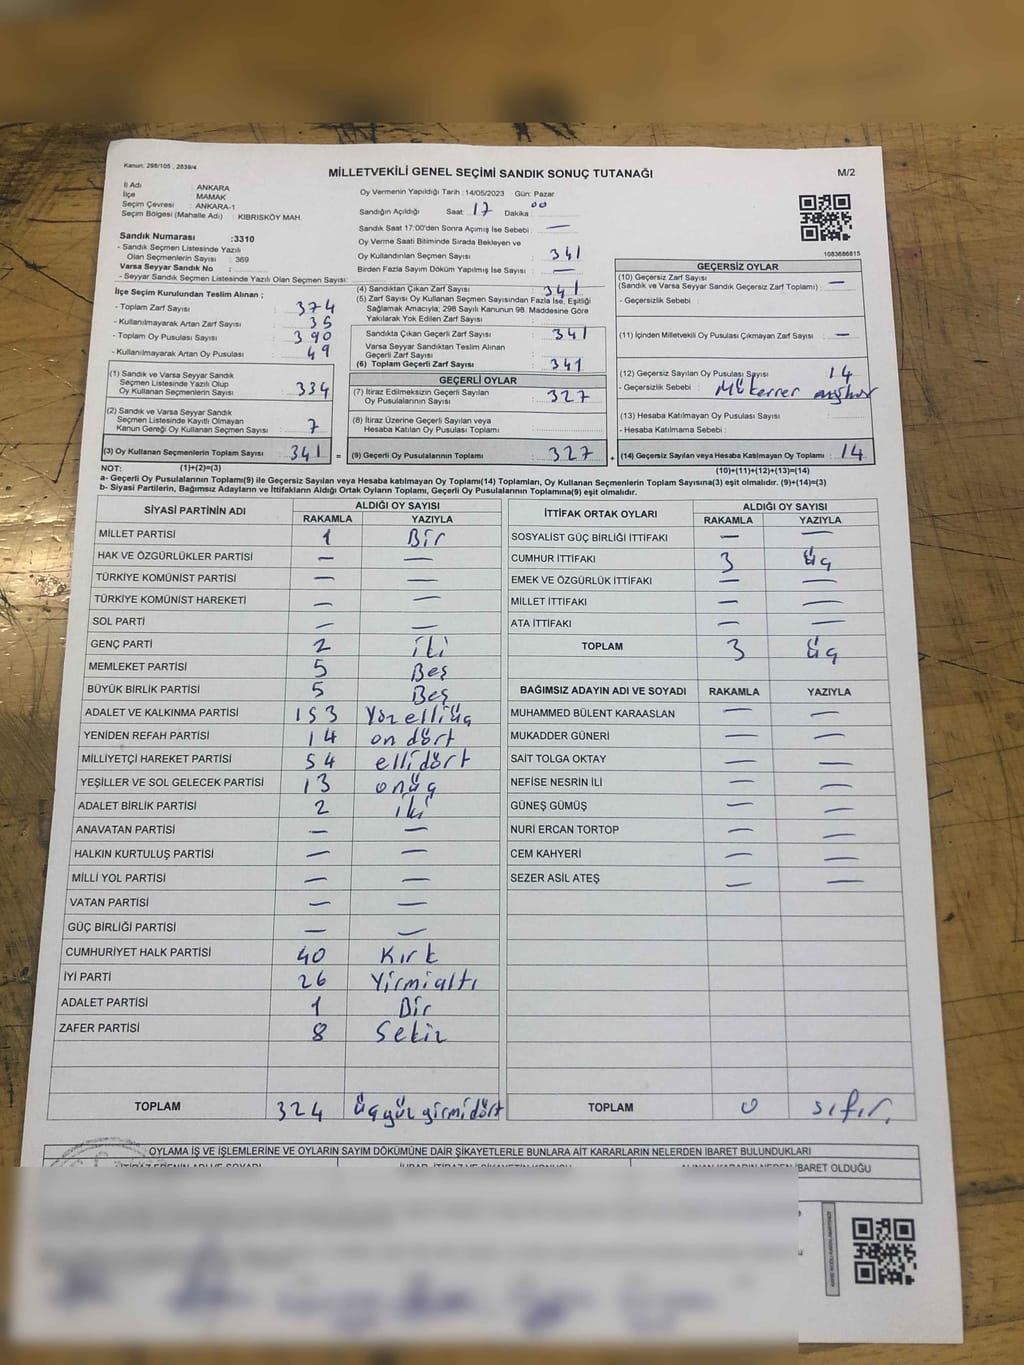 Kanun: 298/105 , 2839/4
MİLLETVEKİLİ GENEL SEÇİMİ SANDIK SONUÇ TUTANAĞI
M/2
İl Adı : ANKARA
İlçe : MAMAK
Seçim Çevresi : ANKARA-1
Seçim Bölgesi (Mahalle Adı) : KIBRISKÖY MAH.
Sandık Numarası :3310
- Sandık Seçmen Listesinde Yazılı
Olan Seçmenlerin Sayısı : 369
Varsa Seyyar Sandık No :
- Seyyar Sandık Seçmen Listesinde Yazılı Olan Seçmen Sayısı:
İlçe Seçim Kurulundan Teslim Alınan ;
- Toplam Zarf Sayısı : 374
- Kullanılmayarak Artan Zarf Sayısı : 35
- Toplam Oy Pusulası : 390
- Kullanılmayarak Artan Oy Pusulası : 49
(1) Sandık ve Varsa Seyyar Sandık
Seçmen Listesinde Yazılı Olup
Oy Kullanan Seçmenlerin Sayısı : 334
(2) Sandık ve Varsa Seyyar Sandık
Seçmen Listesinde Kayıtlı Olmayan
Kanun Gereği Oy Kullanan Seçmen Sayısı : 7
(3) Oy Kullanan Seçmenlerin Toplam Sayısı : 341 =
Oy Vermenin Yapıldığı Tarih :14/05/2023 Gün: Pazar
Sandığın Açıldığı Saat: 17 Dakika : 00
Sandık Saat 17:00'den Sonra Açımış İse Sebebi : —
Oy Verme Saati Bitiminde Sırada Bekleyen ve
Oy Kullandırılan Seçmen Sayısı : 341
Birden Fazla Sayım Döküm Yapılmış İse Sayısı : —
(4) Sandıktan Çıkan Zarf Sayısı : 341
(5) Zarf Sayısı Oy Kullanan Seçmen Sayısından Fazla İse, Eşitliği
Sağlamak Amacıyla; 298 Sayılı Kanunun 98. Maddesine Göre
Yakılarak Yok Edilen Zarf Sayısı :
Sandıkta Çıkan Geçerli Zarf Sayısı : 341
Varsa Seyyar Sandıktan Teslim Alınan
Geçerli Zarf Sayısı :
(6) Toplam Geçerli Zarf Sayısı : 341
GEÇERLİ OYLAR
(7) İtiraz Edilmeksizin Geçerli Sayılan
Oy Pusulalarının Sayısı : 327
(8) İtiraz Üzerine Geçerli Sayılan veya
Hesaba Katılan Oy Pusulası Toplamı :
(9) Geçerli Oy Pusulalarının Toplamı : 327 +
1083686815
GEÇERSİZ OYLAR
(10) Geçersiz Zarf Sayısı
(Sandık ve Varsa Seyyar Sandık Geçersiz Zarf Toplamı) : —
- Geçersizlik Sebebi :
(11) İçinden Milletvekili Oy Pusulası Çıkmayan Zarf Sayısı : —
(12) Geçersiz Sayılan Oy Pusulası Sayısı : 14
- Geçersizlik Sebebi : Mükerrer
(13) Hesaba Katılmayan Oy Pusulası Sayısı :
- Hesaba Katılmama Sebebi :
(14) Geçersiz Sayılan veya Hesaba Katılmayan Oy Toplamı : 14
NOT: (1)+(2)=(3) (10)+(11)+(12)+(13)=(14)
a- Geçerli Oy Pusulalarının Toplamı(9) ile Geçersiz Sayılan veya Hesaba Katılmayan Oy Toplamı(14) Toplamları, Oy Kullanan Seçmenlerin Toplam Sayısına(3) eşit olmalıdır. (9)+(14)=(3)
b- Siyasi Partilerin, Bağımsız Adayların ve İttifakların Aldığı Ortak Oyların Toplamı, Geçerli Oy Pusulalarının Toplamına(9) eşit olmalıdır.
SİYASİ PARTİNİN ADI ALDIĞI OY SAYISI
RAKAMLA YAZIYLA
MİLLET PARTİSİ 1 Bir
HAK VE ÖZGÜRLÜKLER PARTİSİ — —
TÜRKİYE KOMÜNİST PARTİSİ — —
TÜRKİYE KOMÜNİST HAREKETİ — —
SOL PARTİ — —
GENÇ PARTİ 2 iki
MEMLEKET PARTİSİ 5 Beş
BÜYÜK BİRLİK PARTİSİ 5 Beş
ADALET VE KALKINMA PARTİSİ 153 Yüzelliüç
YENİDEN REFAH PARTİSİ 14 on dört
MİLLİYETÇİ HAREKET PARTİSİ 54 ellidört
YEŞİLLER VE SOL GELECEK PARTİSİ 13 onüç
ADALET BİRLİK PARTİSİ 2 iki
ANAVATAN PARTİSİ — —
HALKIN KURTULUŞ PARTİSİ — —
MİLLİ YOL PARTİSİ — —
VATAN PARTİSİ — —
GÜÇ BİRLİĞİ PARTİSİ — —
CUMHURİYET HALK PARTİSİ 40 Kırk
İYİ PARTİ 26 Yirmialtı
ADALET PARTİSİ 1 Bir
ZAFER PARTİSİ 8 Sekiz
TOPLAM 324 üçyüzyirmidört
İTTİFAK ORTAK OYLARI ALDIĞI OY SAYISI
RAKAMLA YAZIYLA
SOSYALİST GÜÇ BİRLİĞİ İTTİFAKI — —
CUMHUR İTTİFAKI 3 üç
EMEK VE ÖZGÜRLÜK İTTİFAKI — —
MİLLET İTTİFAKI — —
ATA İTTİFAKI — —
TOPLAM 3 üç
BAĞIMSIZ ADAYIN ADI VE SOYADI RAKAMLA YAZIYLA
MUHAMMED BÜLENT KARAASLAN — —
MUKADDER GÜNERİ — —
SAİT TOLGA OKTAY — —
NEFİSE NESRİN İLİ — —
GÜNEŞ GÜMÜŞ — —
NURİ ERCAN TORTOP — —
CEM KAHYERİ — —
SEZER ASİL ATEŞ — —
TOPLAM 0 sıfır.
OYLAMA İŞ VE İŞLEMLERİNE VE OYLARIN SAYIM DÖKÜMÜNE DAİR ŞİKAYETLERLE BUNLARA AİT KARARLARIN NELERDEN İBARET BULUNDUKLARI
İBARET OLDUĞU